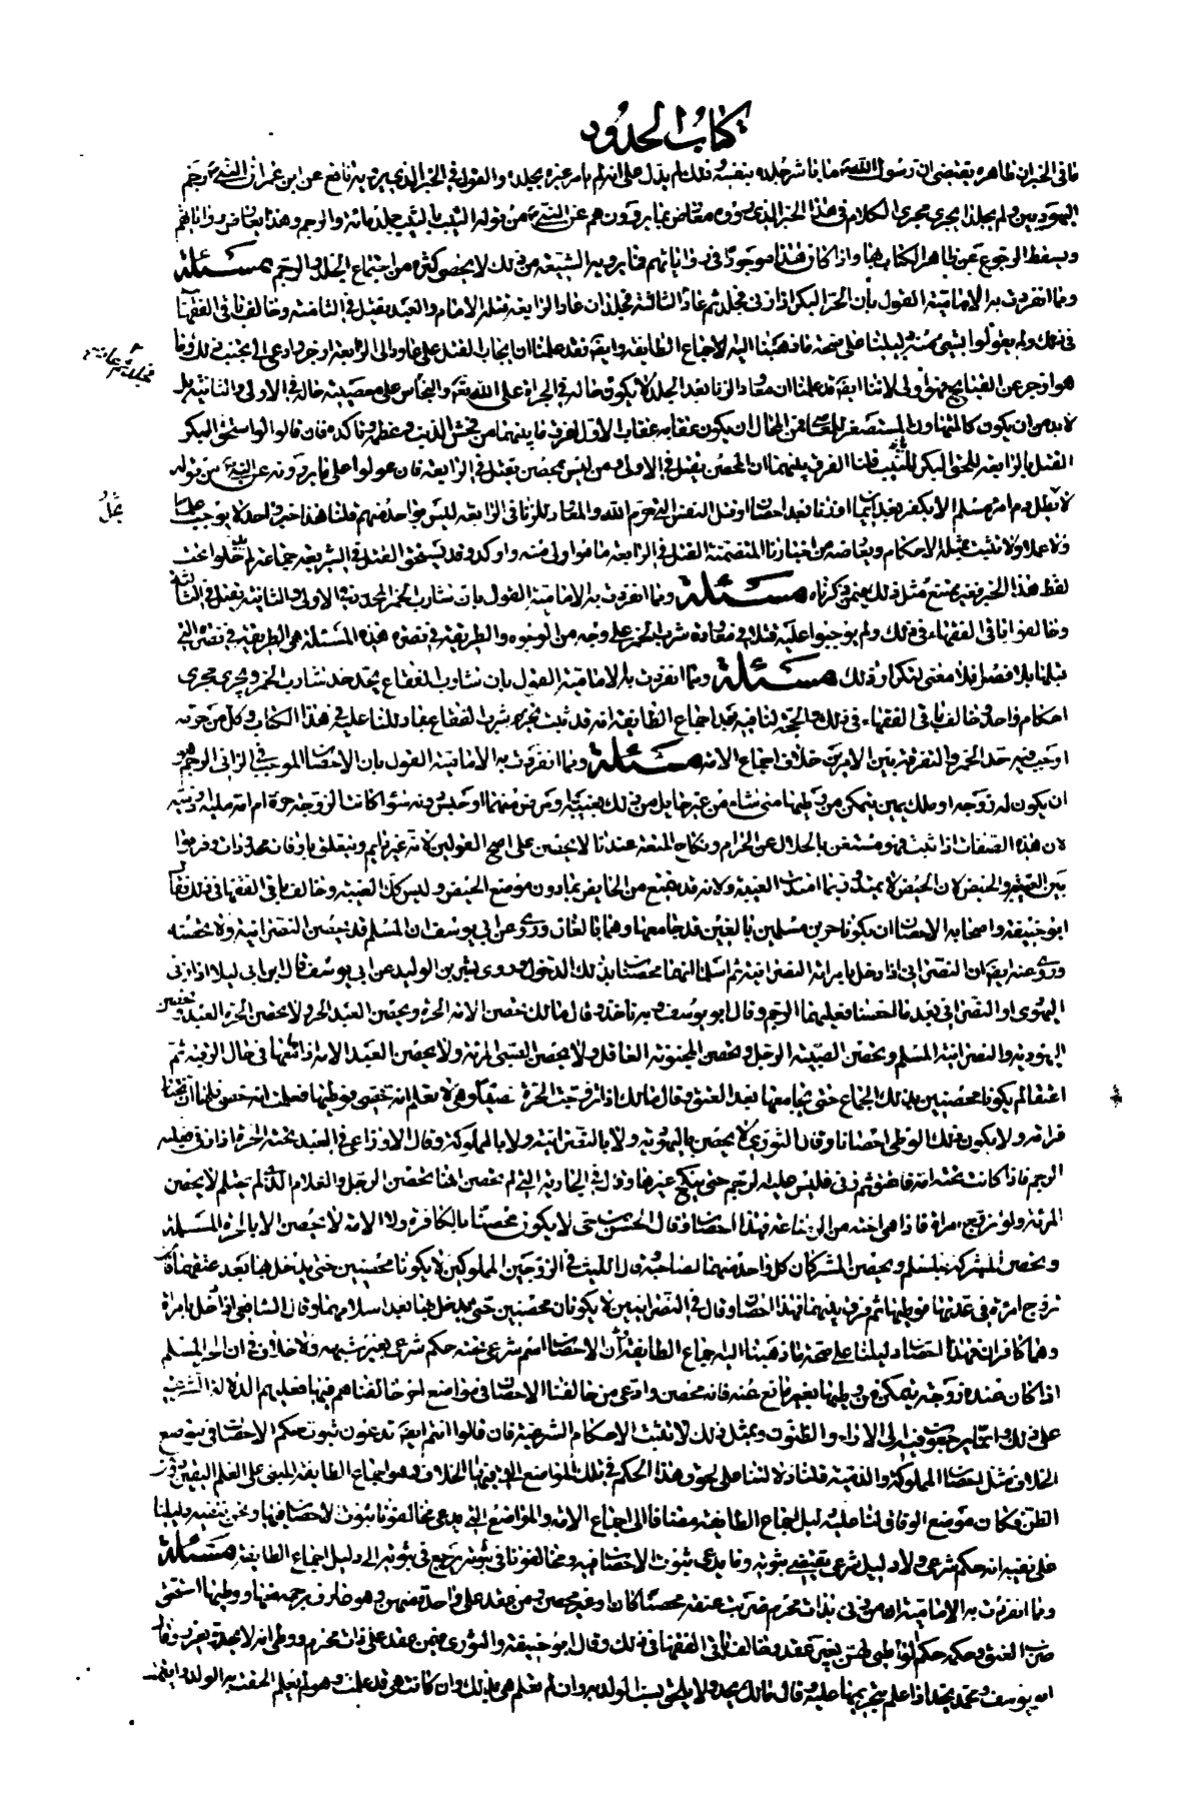 كتاب الحدود
ما في الخبر ان ظاهره يقتضى ان رسول الله ص ما باشر جلده بنفسه فلك لم يدل على انه لم يامر غيره بجلده والقول في الخبر الذى يرويه نافع عن ابن عمر ان النبى ص رجم
اليهوديين ولم يجلدا يجرى مجرى الكلام في هذا الخبر الذى معارض بما يروون هم عن النبى ص من قوله الثيب بالثيب جلد مائة والرجم وهذا يعارض رواياتهم
ويسقط الرجوع عن ظاهر الكتاب بها واذا كان هذا موجودا في رواياتهم فما يرويه الشيعة من ذلك لا يحصى كثرة من اجتماع الجلد والرجم مسئلة
ومما انفردت به الامامية القول بأن الحر البكر اذا زنى فجلد ثم عاد الثالثة فجلد ان عاد الرابعة قتله الامام والعبد يقتل في الثامنة وخالف باقى الفقهاء
في ذلك ولم يقولوا بشىء منه دليلنا على صحة ما ذهبنا اليه الاجماع الطائفة وايضا فقد علمنا ان ايجاب القتل على عاود الى الرابعة ازجر وادعى الى تجنب ذلك وما
هو ازجر عن القبايح فهو اولى لاننا ايضا قد علمنا ان معاود الزنا بعد الجلد لا يكون حاله في الجرأة على الله تعالى والتجاسر على معصيته حاله في الاولى والثانية بل
لا بد من ان يكون كالمتهاون المستصغر للمعاصى فمن المحال ان يكون عقابه عقاب الاول لفرق ما بينهما من فحش الذنب وعظمه وتاكده فان قالوا لو استحق البكر
القتل بالرابعة للحق البكر بالثيب قلنا الفرق بينهما ان المحصن يقتل في الاولى ومن ليس بمحصن يقتل في الرابعة فان عولوا على ما يروونه عن النبى ص من قوله
لا يحل دم امرء مسلم الا بكفر بعد ايمان او زنا بعد احصان او قتل النفس التى حرم الله والمعاود للزنا في الرابعة ليس بواحد منهم قلنا هذا خبر واحد لا يوجب علما
ولا عملا ولا تثبت بمثله الاحكام ويعارضه من اخبارنا المتضمنة القتل في الرابعة ما هو اولى منه واوكد وقد يستحق القتل في الشريعة جماعة لم يدخلوا تحت
لفظ هذا الخبر فغير ممتنع مثل ذلك فيمن ذكرناه مسئلة ومما انفردت به الامامية القول بان شارب الخمر المحدود في الاولى والثانية يقتل في الثالثة
وخالفوا باقى الفقهاء في ذلك ولم يوجبوا عليه قتلا في معاودة شرب الخمر على وجه من الوجوه والطريقة في نصرة هذه المسئلة هى الطريقة في نصرة التى
قبلها بلا فصل فلا معنى لتكرار ذلك مسئلة ومما انفردت به الامامية القول بان شارب الفقاع يحد حد شارب الخمر ويجرى مجرى
احكام واحدة وخالف باقى الفقهاء في ذلك والحجة لنا فيه بعد اجماع الطائفة انه قد ثبت تحريم شرب الفقاع بما دللنا عليه في هذا الكتاب وكل من حرمه
اوجب فيه حد الخمر والتفرقة بين الامرين خلاف اجماع الامة مسئلة ومما انفردت به الامامية القول بان الاحصان الموجب في الزانى الرجم هو
ان يكون له زوجة او ملك يمين يتمكن من وطيها متى شاء من غير حايل من ذلك بغيبة او مرض منهما او حبس دونه سواء كانت الزوجة حرة ام امة ملية وذمية
لان هذه الصفات اذا ثبتت فهو مستغن بالحلال عن الحرام ونكاح المتعة عندنا لا يحصن على اصح القولين لانه غير دايم ومتعلق باوقات محدودات وفرقوا
بين الغيبة والحيض لان الحيض لا يمتد وربما امتدت الغيبة ولانه قد يتمتع من الحايض بما دون موضع الحيض وليس كك الغيبة وخالف باقى الفقهاء في ذلك فقال
ابو حنيفة واصحابه الاحصان ان يكونا حرين مسلمين بالغين قد جامعها وهما بالغان وروى عن ابى يوسف ان المسلم قد يحصن النصرانية ولا تحصنه
وروى عنه ايضا ان النصرانى اذا دخل بامرأته النصرانية ثم اسلما انهما محصنان بذلك الدخول وروى بشر بن الوليد عن ابى يوسف قال ابن ابى ليلا اذا زنى
اليهودى او النصرانى بعد ما احصنا فعليهما الرجم وقال ابو يوسف وبه ناخذ وقال مالك تحصن الامة الحر ويحصن العبد الحرة ولا يحصن الحرة العبد وتحصن
اليهودية والنصرانية المسلم وتحصن الصبية الرجل وتحصن المجنونة العاقل ولا يحصن الصبى المرأة ولا يحصن العبد الامة اذا جامعها في حال الرقية ثم
اعتقا لم يكونا محصنين بذلك الجماع حتى يجامعها بعد العتق وقال مالك اذا تزوجت الحرة خصيا وهى لا تعلم انه خصى فوطيها فعلمت انه خصى فلها ان تختار
فراقه ولا يكون ذلك الوطى احصانا وقال الثورى لا يحصن باليهودية ولا بالنصرانية ولا بالمملوكة وقال الاوزاعى في العبد تحته الحرة اذا زنى فعليه
الرجم فاذا كانت تحته امة فاعتق ثم زنى فليس عليه الرجم حتى ينكح غيرها وقال في الجارية التى لم تحصن انها تحصن الرجل والغلام الذى لم يحتلم لا يحصن
المرأة ولو تزوج امرأة فاذا هى اخته من الرضاعة فهذا احصان وقال الحسن بن حى لا يكون محصنا بالكافرة ولا الامة لا يحصن الا بالحرة المسلمة
ويحصن المشركة بالمسلم ويحصن المشركان كل واحد منهما لصاحبه وقال الليث في الزوجين المملوكين لا يكونا محصنين حتى يدخل بها بعد عتقهما
تزوج امرأة في عدتها فوطيها ثم فرق بينهما فهذا احصان وقال في النصرانيين لا يكونان محصنين حتى يدخل بها بعد اسلامهما وقال الشافعى اذا دخل بامرأة
وهما كافران فهذا احصان دليلنا على صحة ما ذهبنا اليه اجماع الطائفة ولان الاحصان اسم شرعى تحته حكم شرعى بغير شبهه ولا خلاف في ان الحر المسلم
اذا كان عنده زوجة يتمكن من وطيها بغير مانع عنه فانه محصن وادعى من خالفنا الاحصان في مواضع اخر خالفناهم فيها فعليهم الدلالة الشرعية
على ذلك وانما يرجعون فيه الى الاراء والظنون وبمثل ذلك لا تثبت الاحكام الشرعية فان قالوا انتم ايضا تدعون ثبوت حكم الاحصان في موضع
الخلاف مثل احصان المملوكة والذمية قلنا دلالتنا على لحوق هذا الحكم في تلك المواضع التى فيها الخلاف هو اجماع الطائفة المبنى على العلم اليقين دون
الظن فكان موضع الوفاق لنا عليه دليل اجماع الطائفة مضافا الى اجماع الامة والمواضع التى يدعى مخالفونا ثبوت الاحصان فيها ونحن ننفيه دليلنا
على نفيه انه حكم شرعى ولا دليل شرعى يقتضى ثبوته وما يدعى ثبوت الاحصان فيه ومخالفونا في ثبوته نرجع في ثبوته الى دليل اجماع الطائفة مسئلة
ومما انفردت به الامامية انه من زنى بذات محرم ضربت عنقه محصنا كان او غير محصن ومن عقد على واحدة منهن وهو عارف برحمه منها ووطيها استحق
ضرب العنق وحكمه حكم الواطى لهن بغير عقد وخالف باقى الفقهاء في ذلك وقال ابو حنيفة والثورى فيمن عقد على ذات محرم ووطى انه لا يحد ويعزر وقال
ابو يوسف ومحمد يحد اذا علم بتحريمها عليه وقال مالك يحد ولا يلحق نسب الولد به وان لم تعلم هى بذلك وان كانت هى قد علمت وهو لم يعلم الحق به الولد